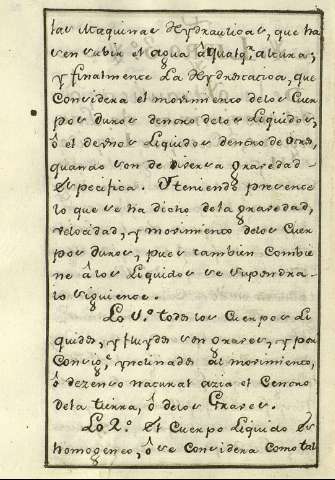 las Maquinas Hydraulicas, que ha
cen subir el agua à qualqª. altura;
y finalmente la Hydrostatica, que
Considera el movimiento delos Cuer
pos duros dentro delos Liquidos,
ò el de unos Liquidos dentro de otros,
quando son de diversa gravedad
Especifica. Y teniendo presente
lo que se ha dicho dela gravedad,
velocidad, y movimiento delos Cuer
pos duros, pues tambien Combie
ne à los Liquidos se supondra
lo siguiente.
Lo 1.º todos los Cuerpos Li
quidos, y fluydos son graves, y por
Consigᵉ. ynclinados al movimiento,
ò dezenso natural azia el Centro
dela tierra, ò delos Graves.
Lo 2.º El Cuerpo Liquido Es
homogeneo, ò se Considera Como tal